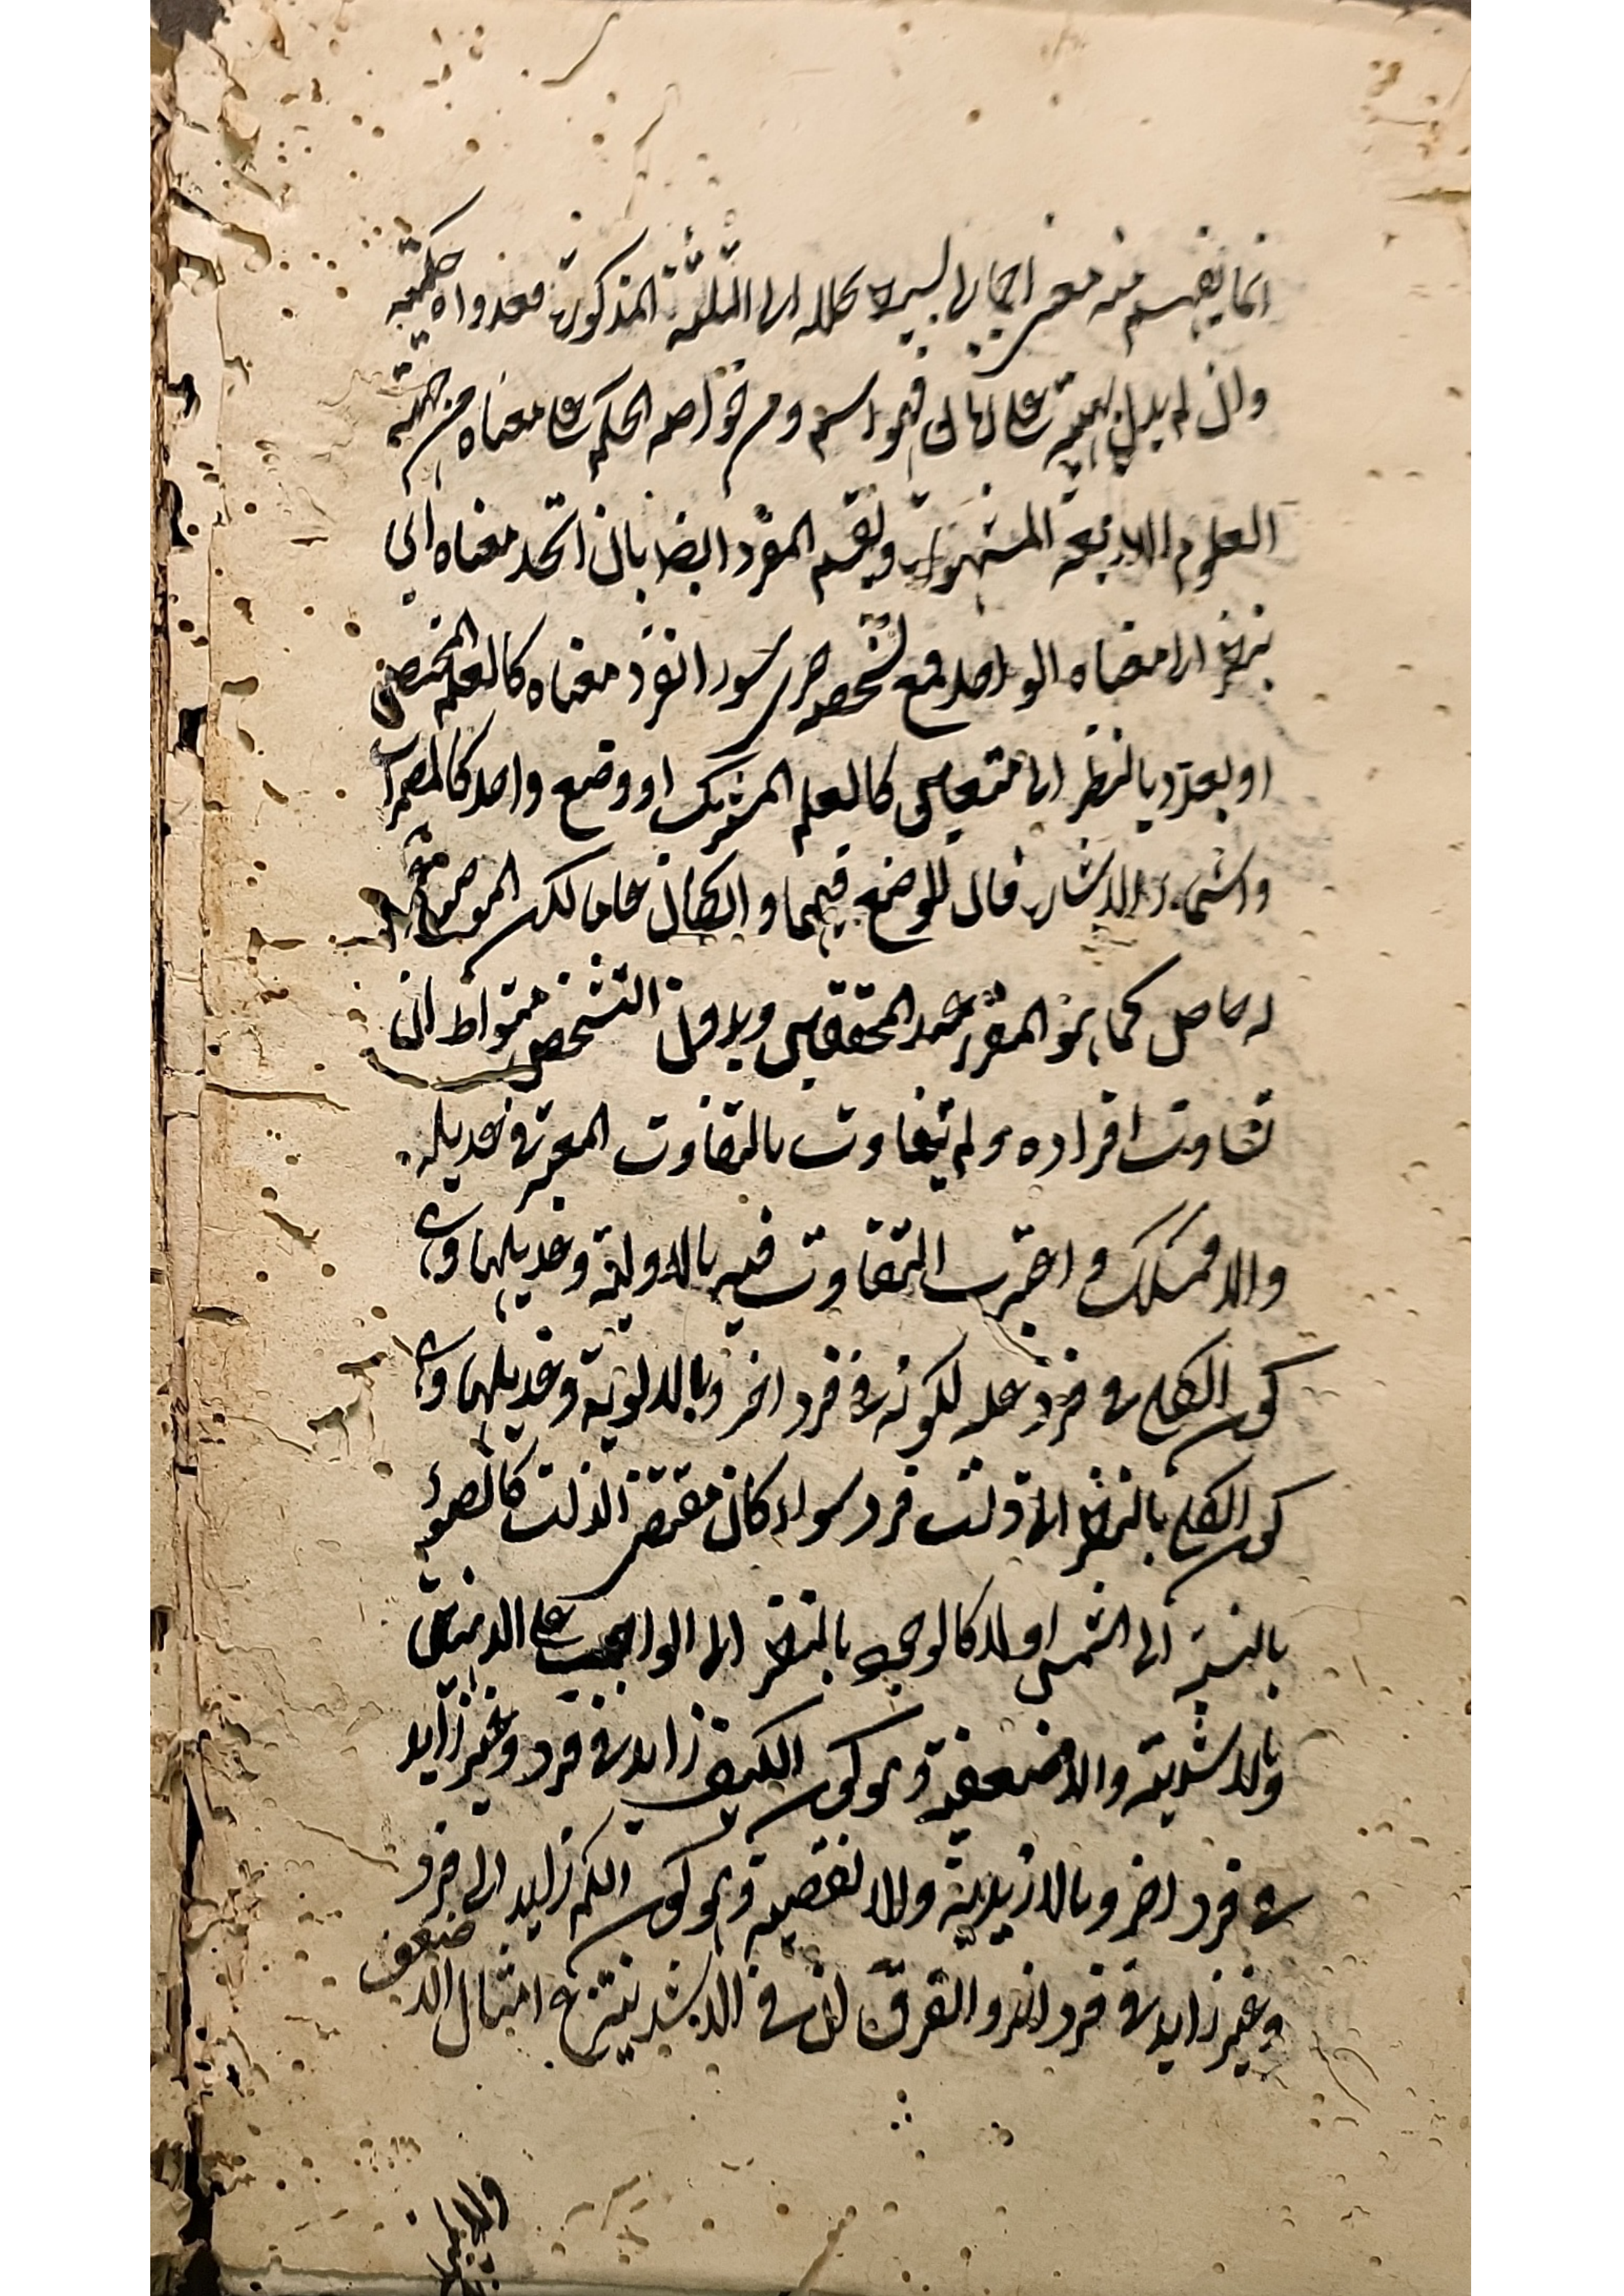 انما يفهم منه معنى اجمالي يسير تحلله الى الثلثة المذكورة فعدواه كلمته
وان لم يدل بهيئته على زمان فهو اسم ومن خواصه الحكم على معناه من جهته
العلوم الاربعة المشهورة ويقسم المفرد ايضا بان اتحد معناه اي
بنظر الى معناه الواحد فمع تشخصه جزئي سواء انفرد معناه كالعلم المختص
او تعدد بالنظر الى متعين كالعلم المشترك او وضع واحد كالمضمرات
واسماء الاشارة فان الوضع فيهما وان كان عاما لكن الموضوع
له خاص كما هو المقرر عند المحققين وبدون التشخص متواط ان
تساوت افراده ولم يتفاوت بالتفاوت المعتبرة في عديله
والا فمشكك واعتبرت التفاوت فيه بالاولية وعديلها وهى
كون الكلي في فرد علة لكونه في فرد اخر وبالاولوية وعديلها وهى
كون الكلي بالنظر الى ذات فرد سواء كان مقتضى الذات كالضوء
بالنسبة الى الشمس او لا كالوجود بالنظر الى الواجب على الرايين
وبالاشدية والاضعفية وهو كون الكيف زايد في فرد وغير زايد
في فرد اخر وبالازيدية والانقصية وهو كون الكم زايد الى فرد
وغير زايد في فرد اخر والفرق ان في الاشد ينتزع امثال الاضعف